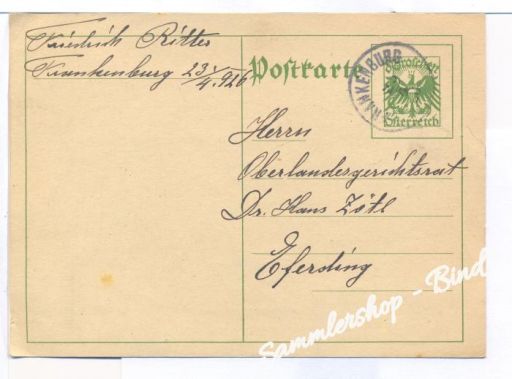 Friedrich Ritter
Frankenburg 23/4.926
Postkarte
FRANKENBURG
Groschen
Österreich
Herrn
Oberlandesgerichtsrat
Dr. Hans Zötl
Eferding
Sammlershop - Bindl